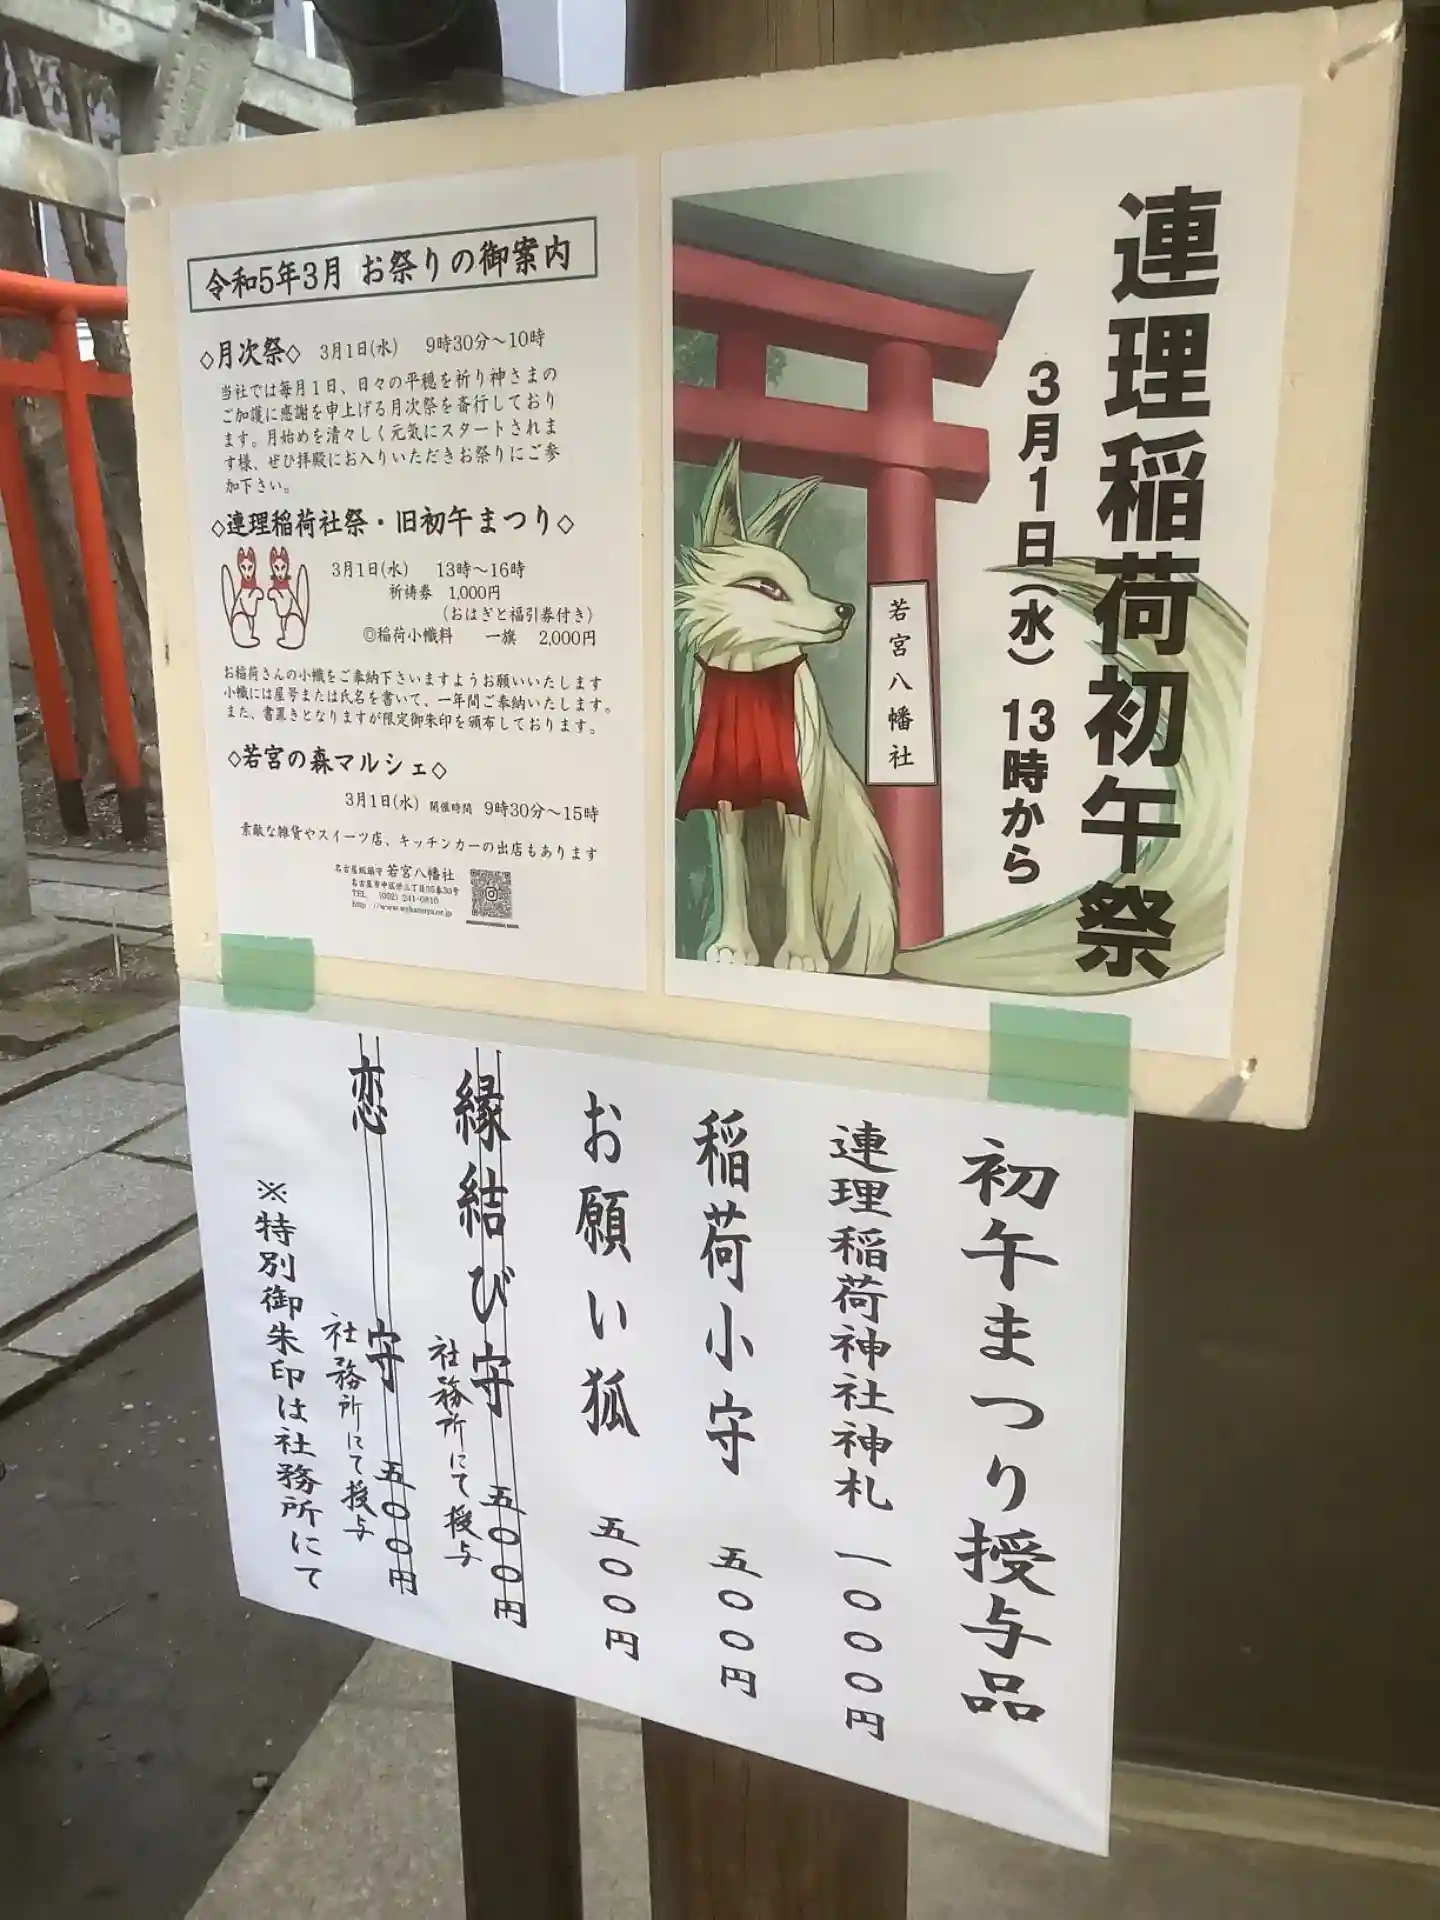 令和5年3月 お祭りの御案内
◇月次祭◇ 3月1日(水) 9時30分～10時
当社では毎月1日、日々の平穏を祈り神さまの
ご加護に感謝を申上げる月次祭を斎行しており
ます。月始めを清々しく元気にスタートされま
す様、ぜひ拝殿にお入りいただきお祭りにご参
加下さい。
◇連理稲荷社祭・旧初午まつり◇
3月1日(水) 13時～16時
祈祷券 1,000円
(おはぎと福引券付き)
◎稲荷小幟料 一旗 2,000円
お稲荷さんの小幟をご奉納下さいますようお願いいたします
小幟には屋号または氏名を書いて、一年間ご奉納いたします。
また、書置きとなりますが限定御朱印を頒布しております。
◇若宮の森マルシェ◇
3月1日(水) 開催時間 9時30分～15時
素敵な雑貨やスイーツ店、キッチンカーの出店もあります
名古屋総鎮守 若宮八幡社
名古屋市中区栄三丁目35番30号
TEL (052) 241-0810
連理稲荷初午祭
3月1日(水) 13時から
若宮八幡社
初午まつり授与品
連理稲荷神社神札 一〇〇〇円
稲荷小守 五〇〇円
お願い狐 五〇〇円
縁結び守 五〇〇円
社務所にて授与
恋 守 五〇〇円
社務所にて授与
※特別御朱印は社務所にて